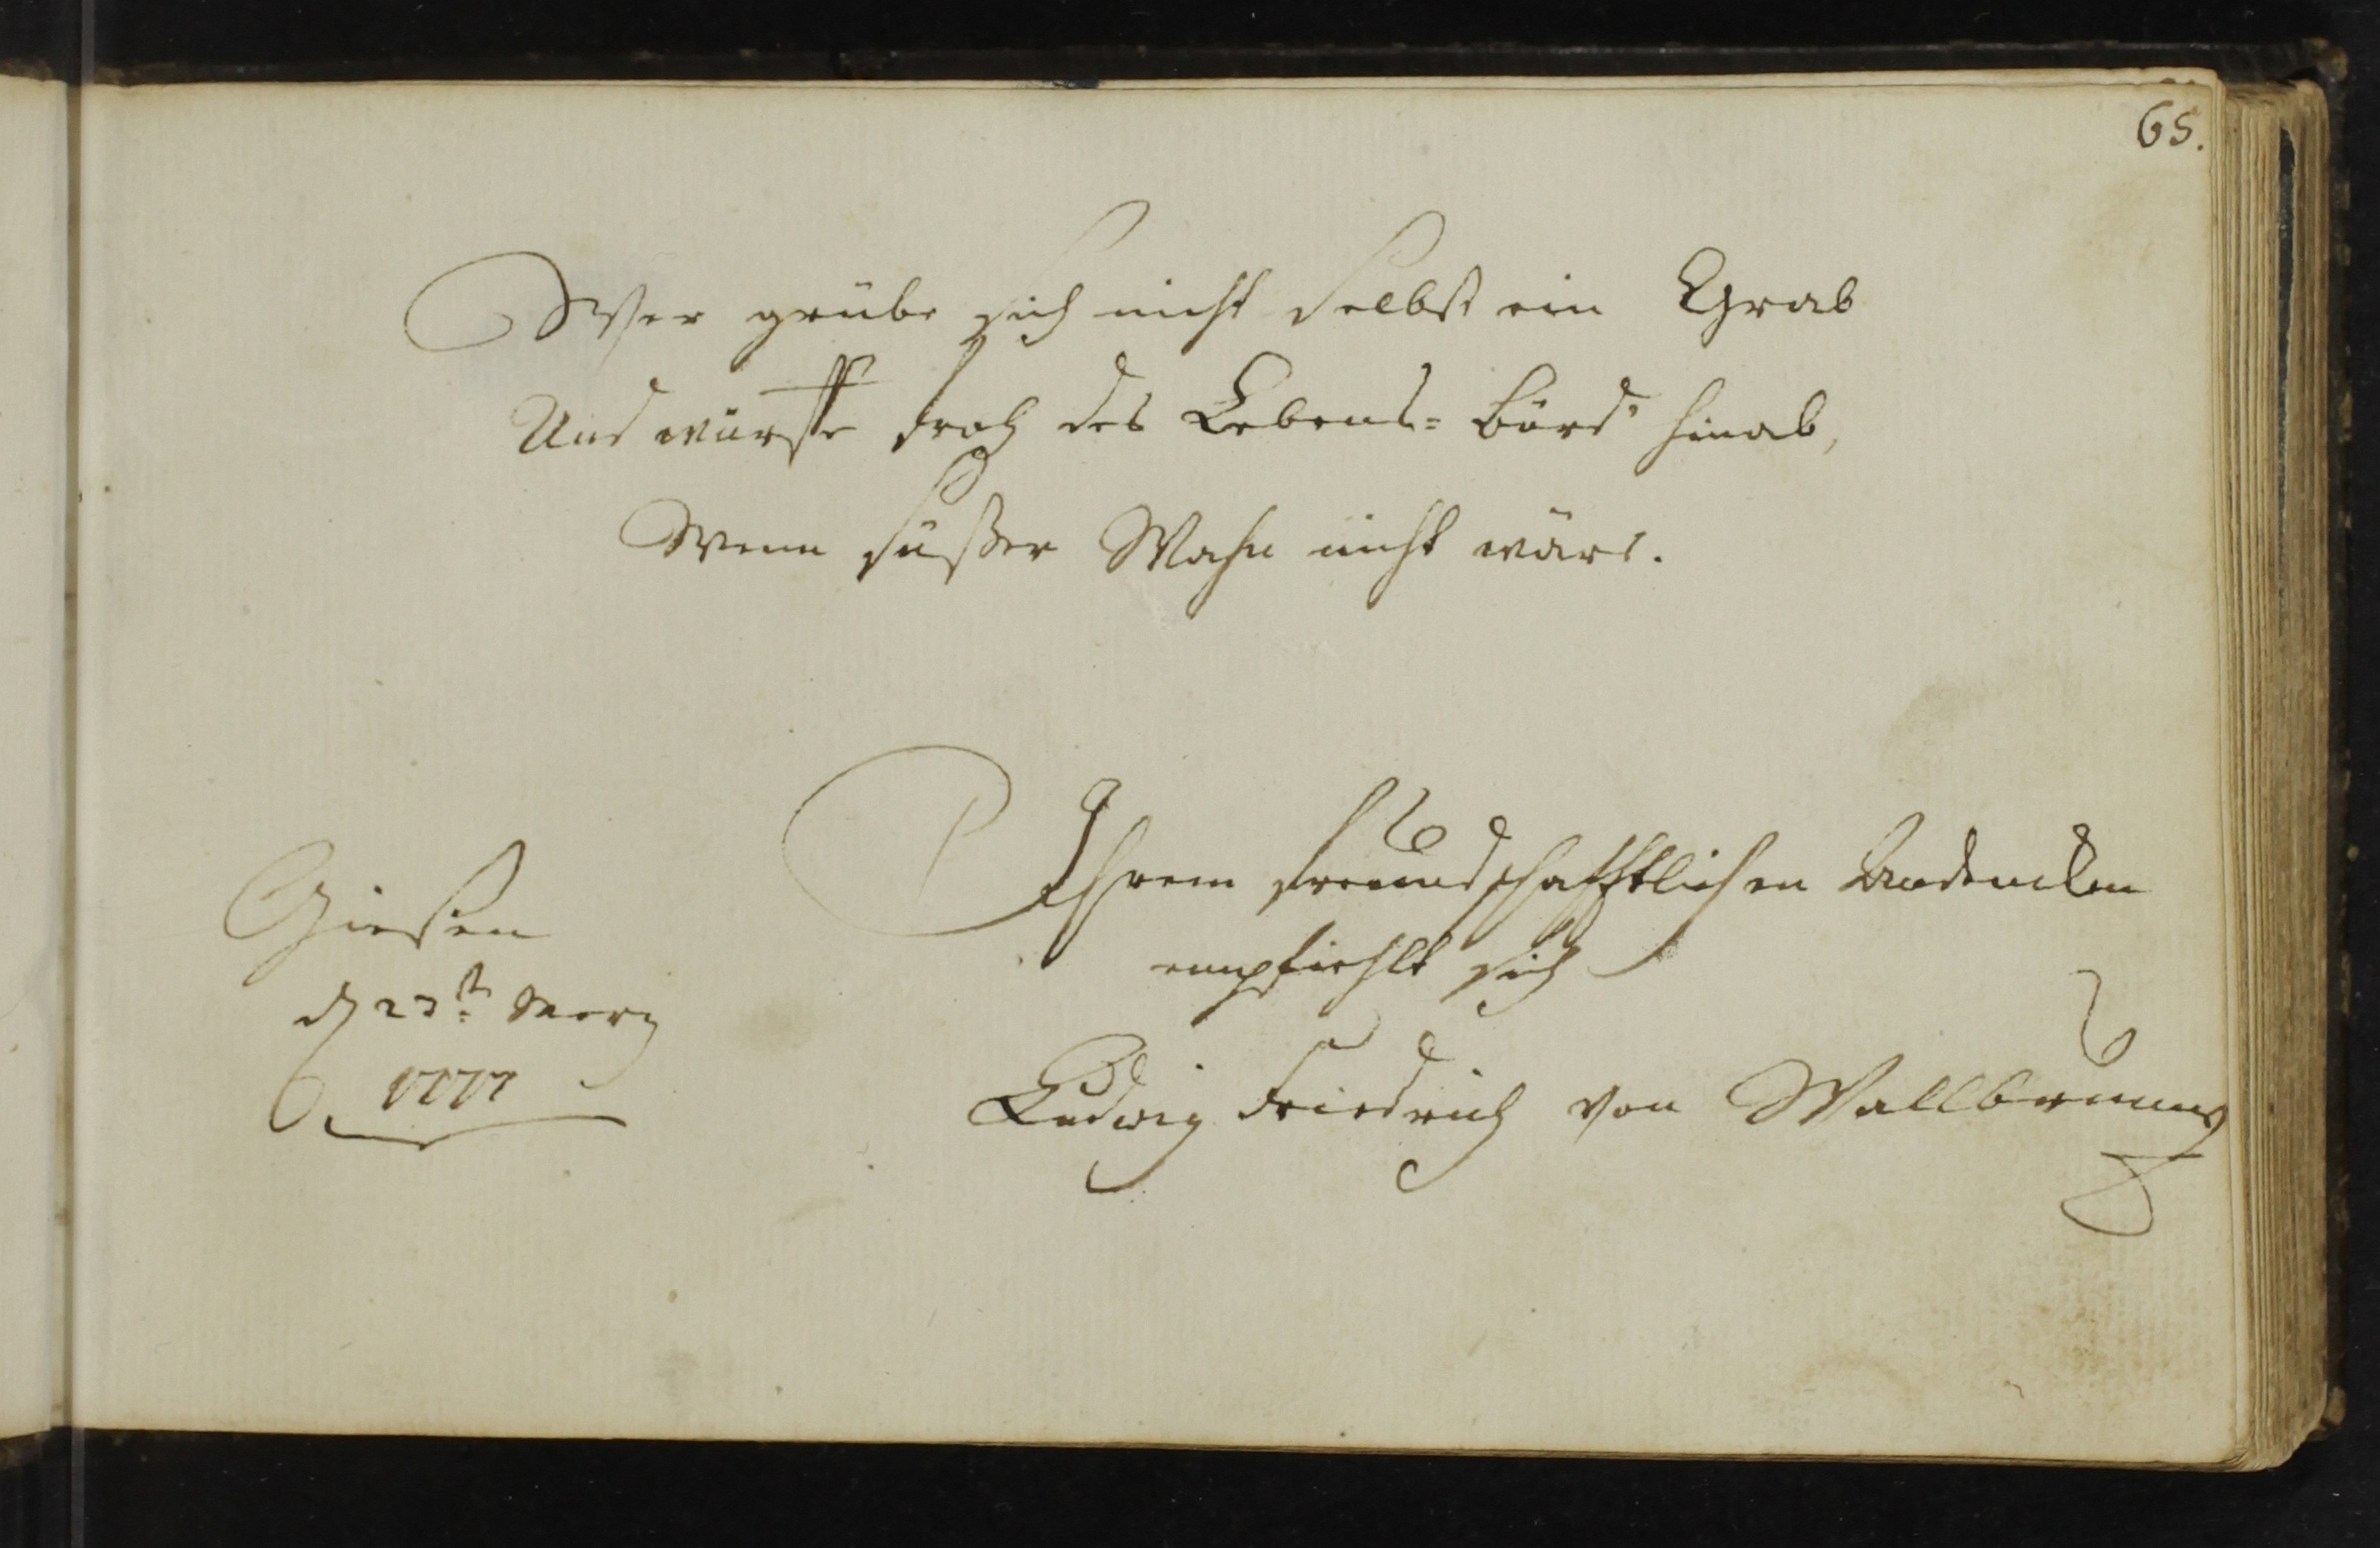 65.
Wer grübe sich nicht selbst ein Grab
Und würffe froh des Lebens= Bürd' hinab,
Wenn süßer Wahn nicht wäre.
Ihrem freundschafftlichen Andencken
empfiehlt sich
Ludwig Friedrich von Wallbrunn
Giesen
d 23t. Merz
1777